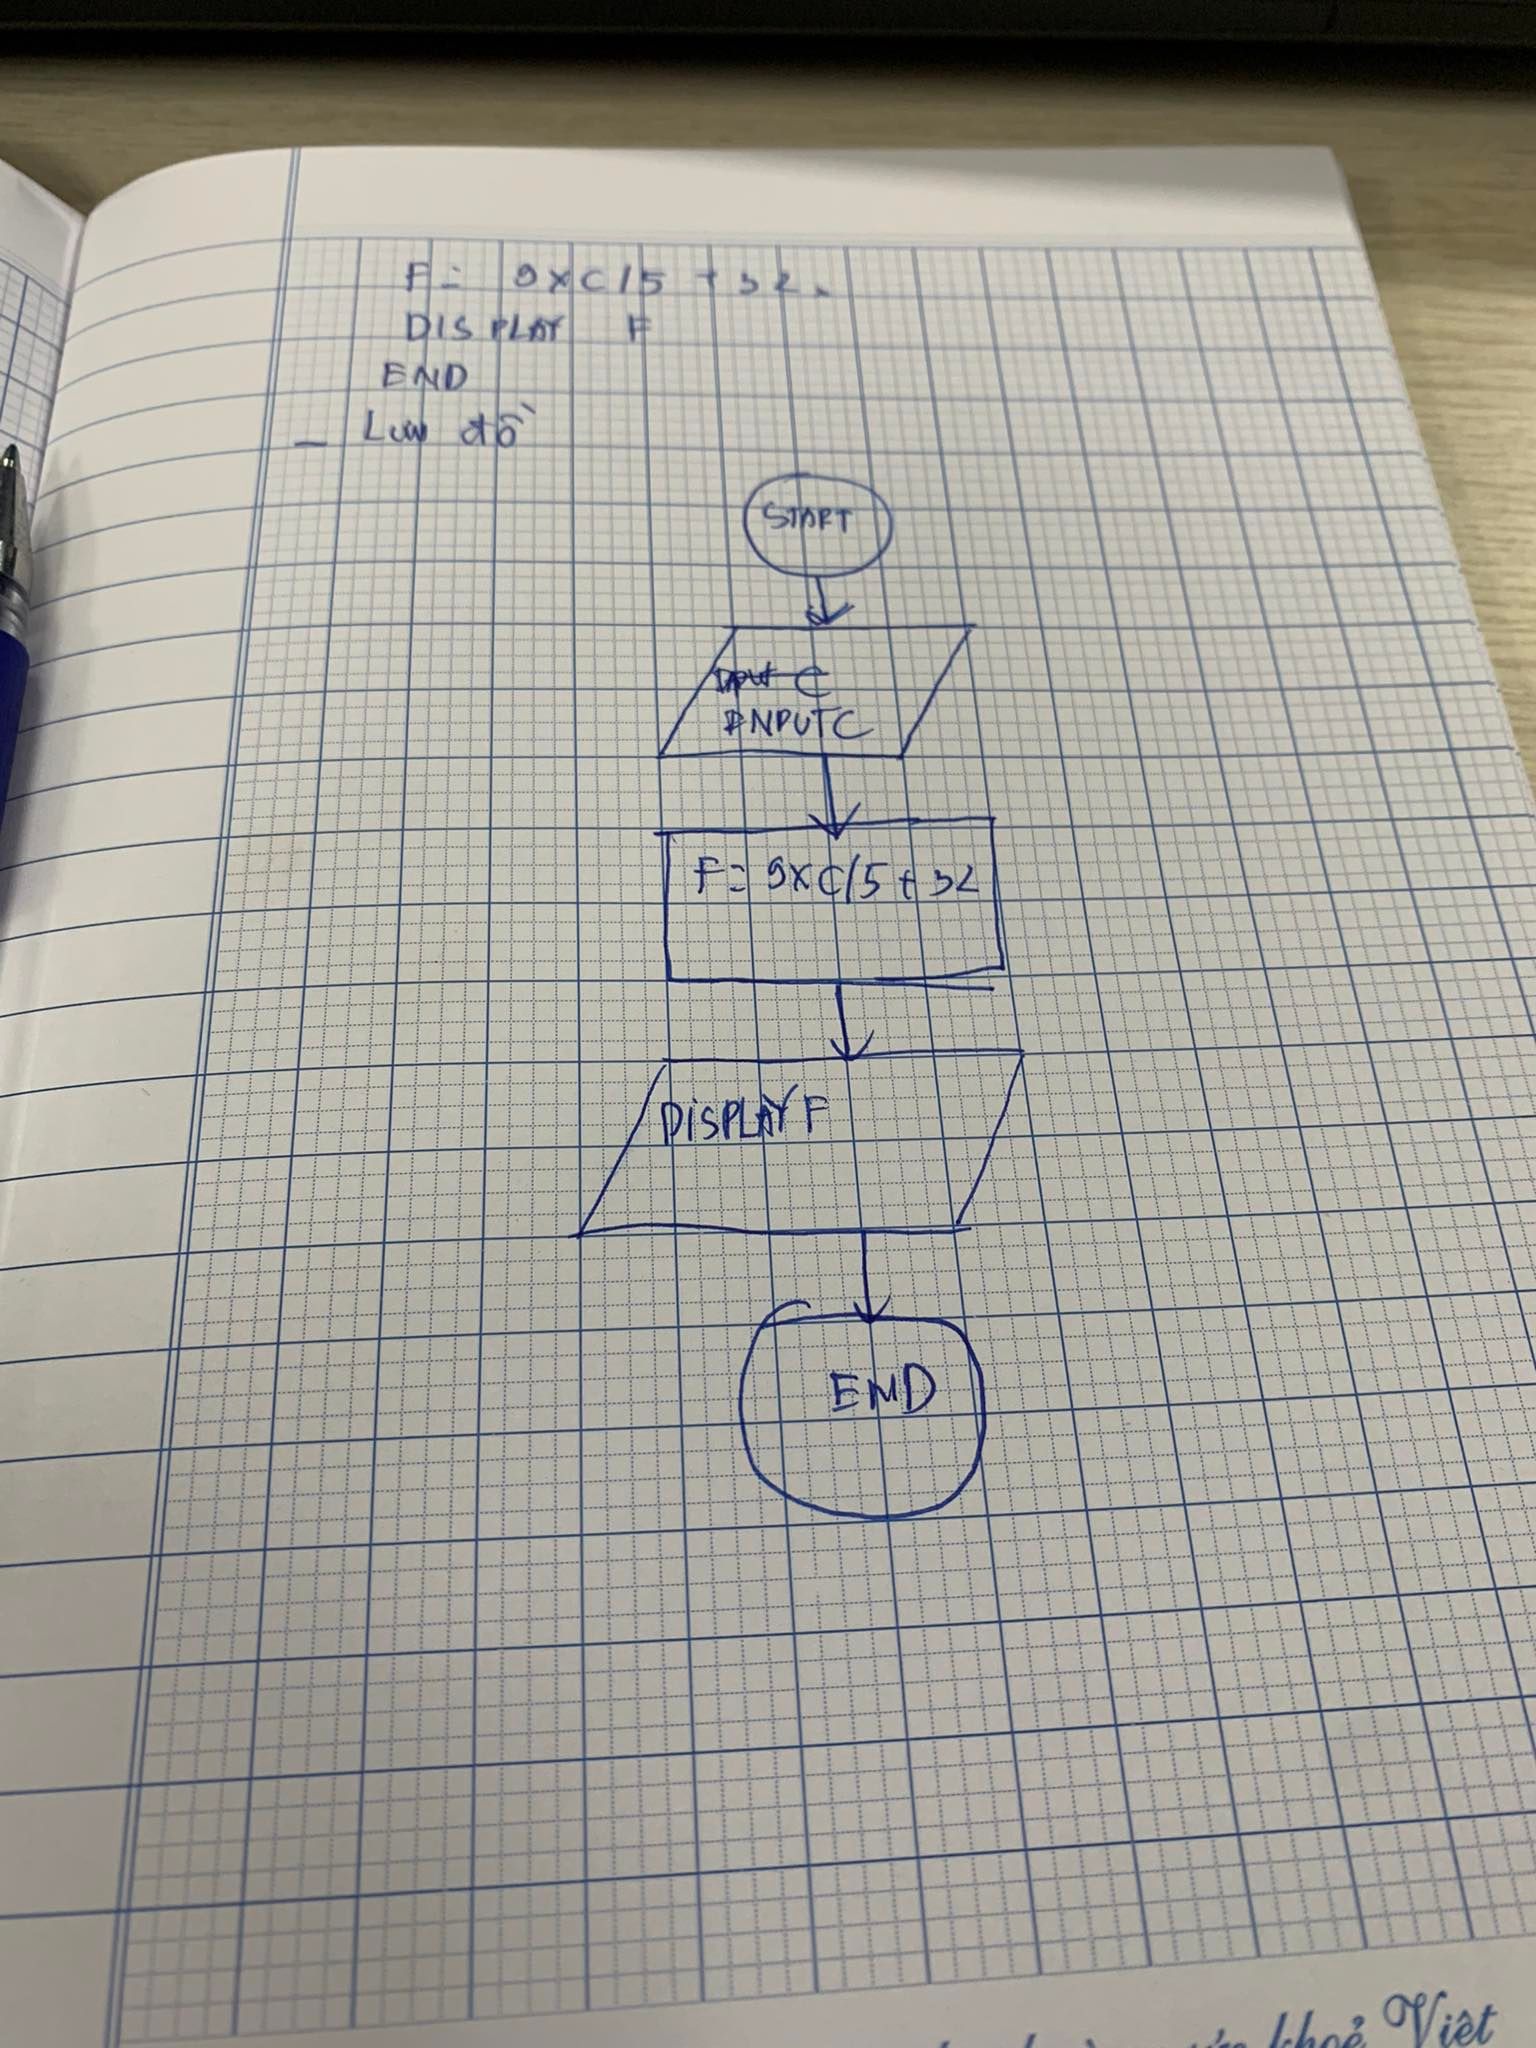 F = 9xC/5 + 32.
DISPLAY F
END
_ Lưu đồ
START
INPUT C
F = 9xC/5 + 32
DISPLAY F
END
khoẻ Việt